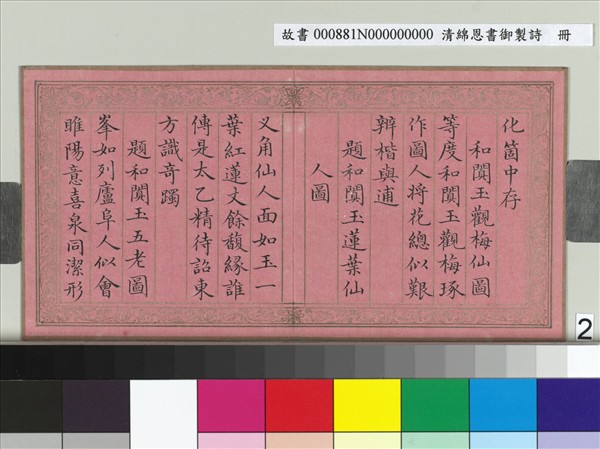 故書 000881N000000000 清綿恩書御製詩 冊
化箇中存
和闐玉觀梅仙圖
等度和闐玉觀梅琢
作圖人將花總似艱
辨楷與逋
題和闐玉蓮葉仙
人圖
丫角仙人面如玉一
葉紅蓮文餘馥緣誰
傳是太乙精待詔東
方識奇躅
題和闐玉五老圖
峯如列廬阜人似會
睢陽意喜泉同潔形
2